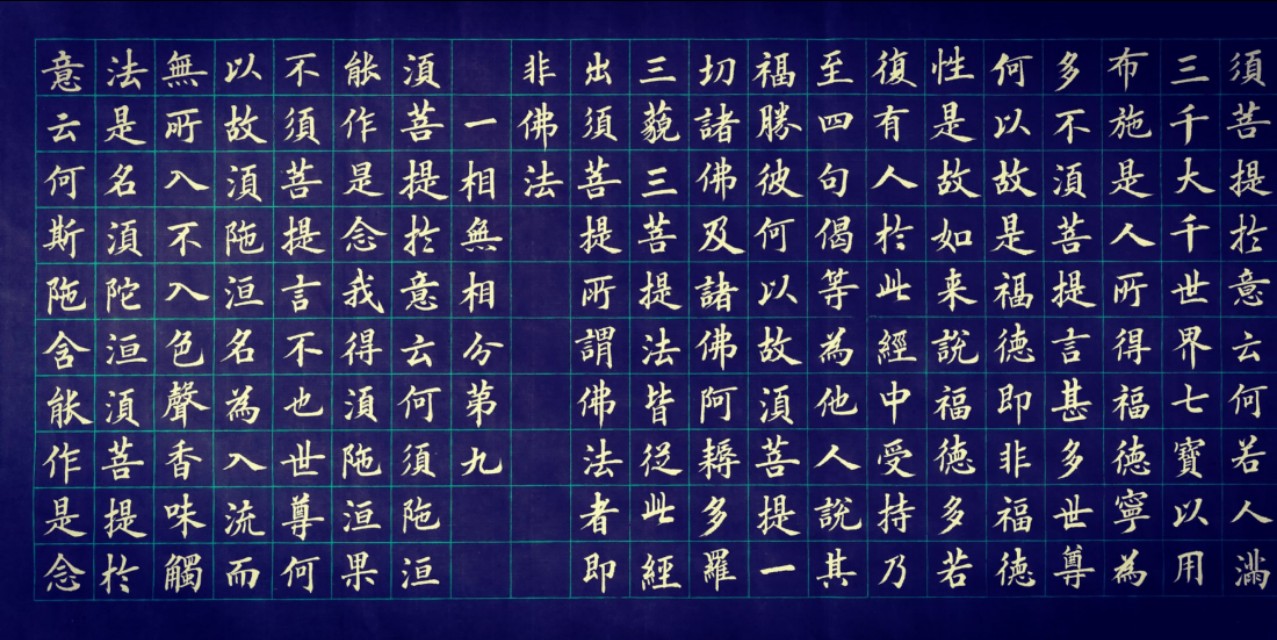 須菩提於意云何若人滿
三千大千世界七寶以用
布施是人所得福德寧為
多不湏菩提言甚多世尊
何以故是福德即非福德
性是故如来說福德多若
復有人於此經中受持乃
至四句偈等為他人說其
福勝彼何以故湏菩提一
切諸佛及諸佛阿耨多羅
三藐三菩提法皆從此經
出須菩提所謂佛法者即
非佛法
一相無相分第九
湏菩提於意云何須陁洹
能作是念我得湏陁洹果
不須菩提言不也世尊何
以故湏陁洹名為入流而
無所入不入色聲香味觸
法是名湏陀洹湏菩提於
意云何斯陁含能作是念